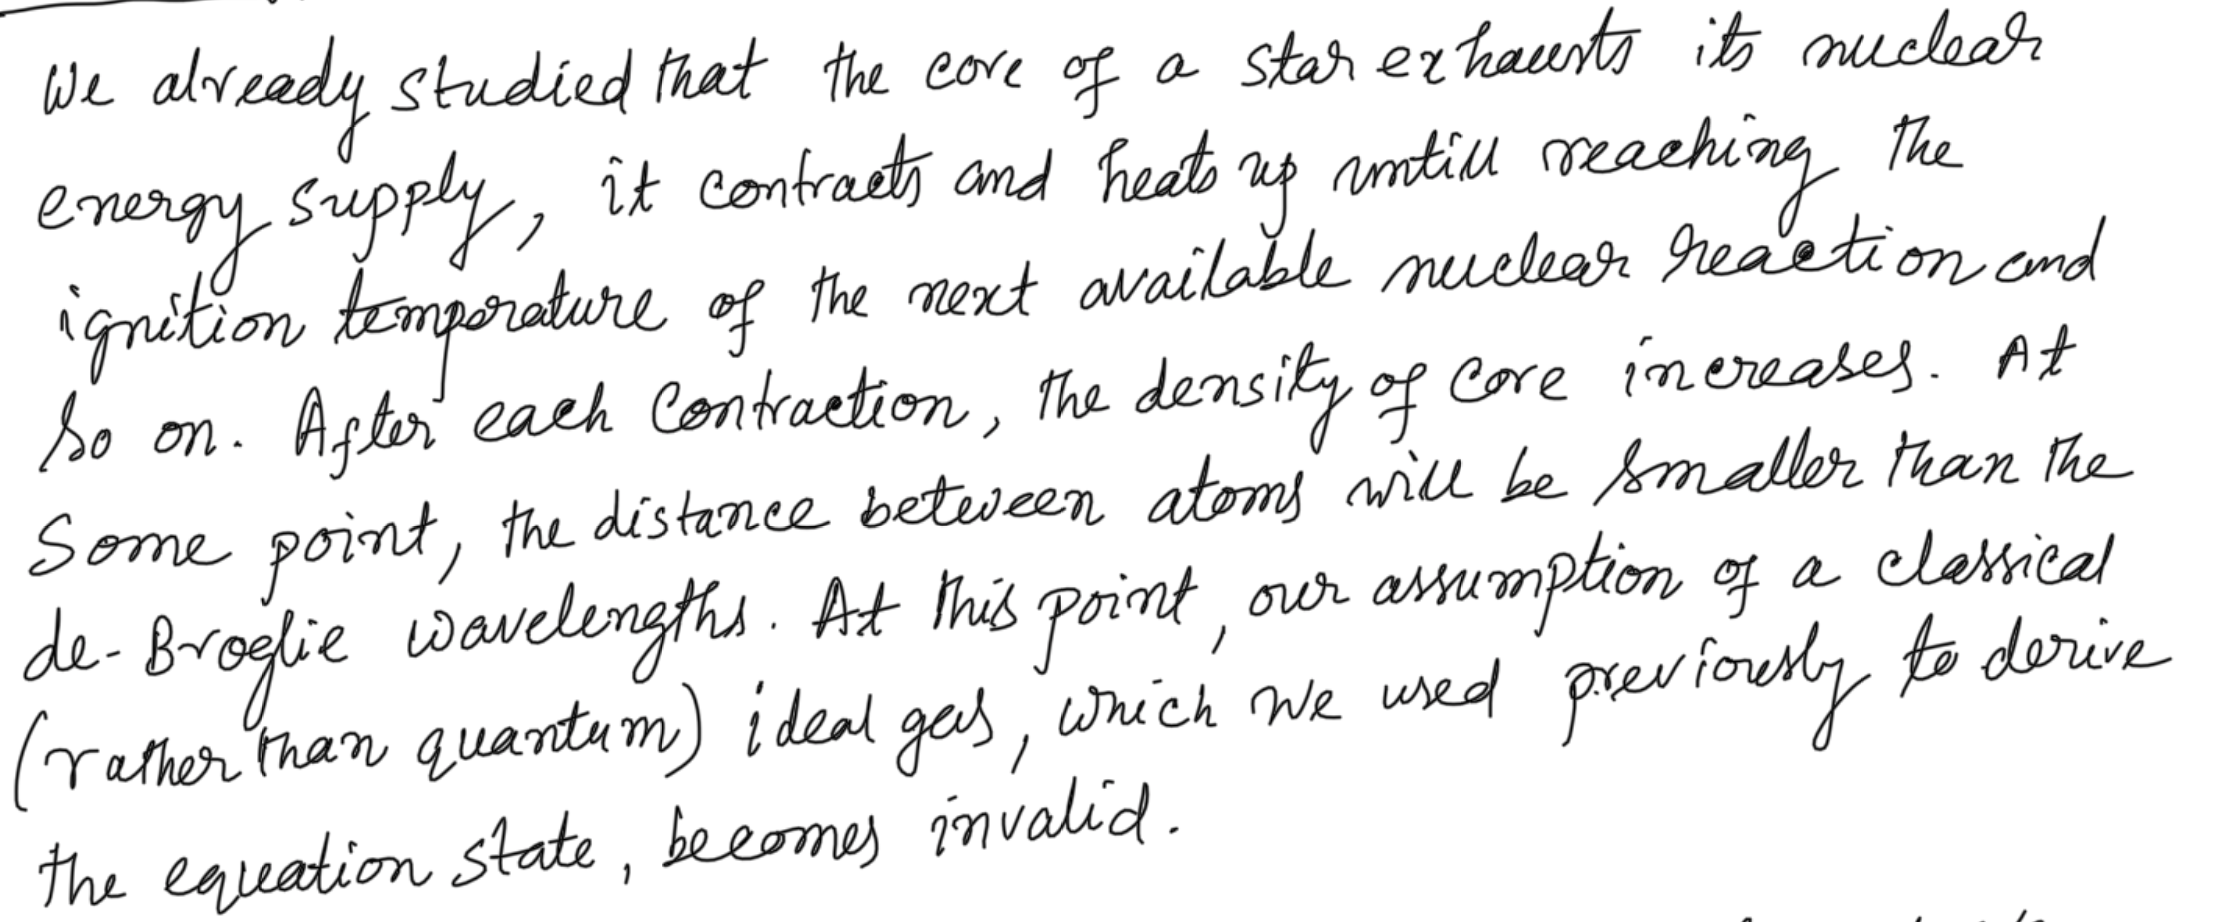 We already studied that the core of a star exhausts its nuclear
energy supply, it contracts and heats up untill reaching the
ignition temperature of the next available nuclear reaction and
so on. After each contraction, the density of core increases. At
some point, the distance between atoms will be smaller than the
de-Broglie wavelengths. At this point, our assumption of a classical
(rather than quantum) ideal gas, which we used previously to derive
the equation state, becomes invalid.